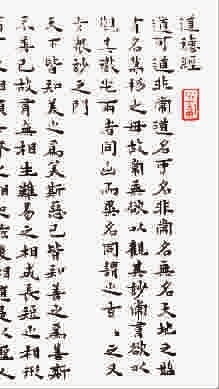 道德經
道可道非常道名可名非常名無名天地之始
有名萬物之母故常無欲以觀其妙常有欲以
觀其徼此兩者同出而異名同謂之玄〻之又
玄衆妙之門
天下皆知美之為美斯惡已皆知善之為善斯
不善已故有無相生難易之相成長短之相形